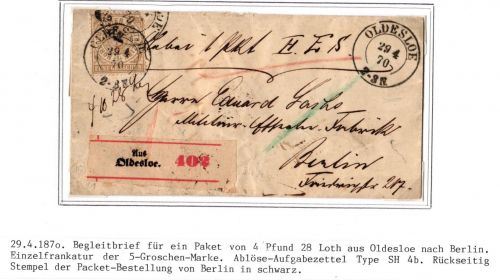 OLDESLOE
29 4
70
2-3N.
OLDESLOE
29 4
70
2-3N.
Hierbei 1 Pkt H. E. S
Herrn Eduard Sachs
Militair-Effekten Fabrik
Berlin
Aus
Oldesloe.
402
29.4.187o. Begleitbrief für ein Paket von 4 Pfund 28 Loth aus Oldesloe nach Berlin.
Einzelfrankatur der 5-Groschen-Marke. Ablöse-Aufgabezettel Type SH 4b. Rückseitig
Stempel der Packet-Bestellung von Berlin in schwarz.